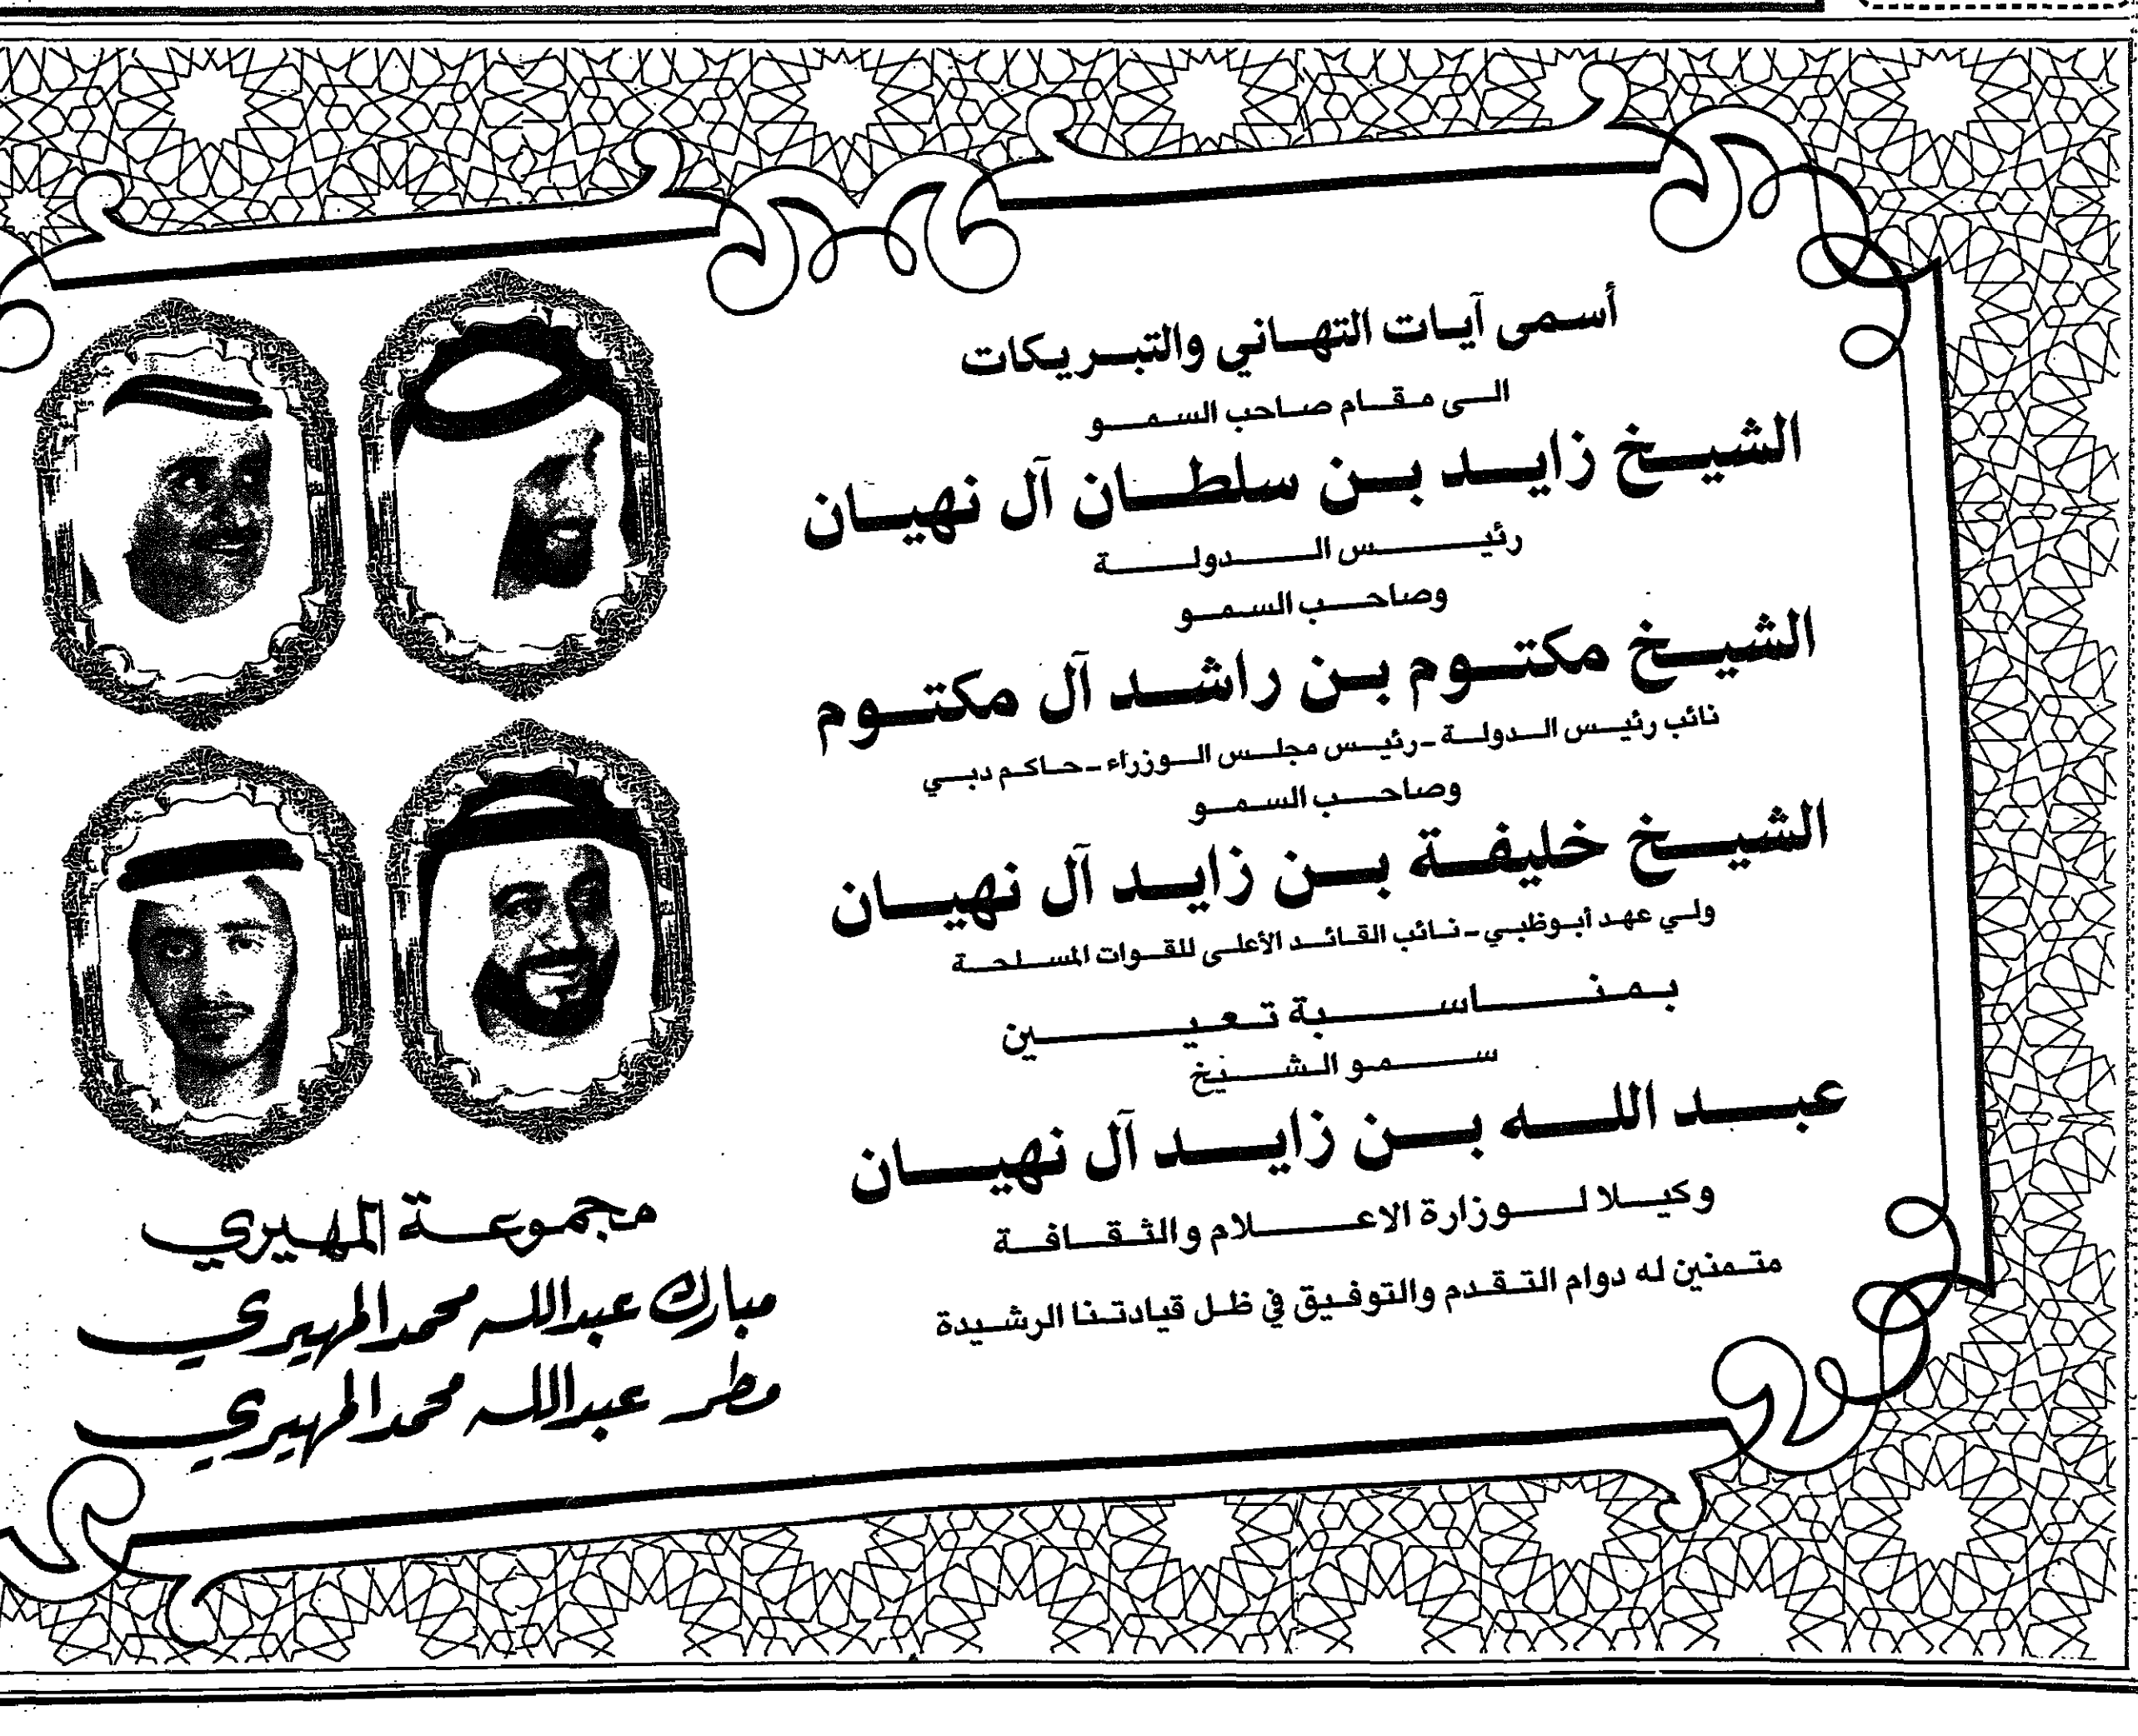 أسمى آيات التهاني والتبريكات
الى مقام صاحب السمو
الشيخ زايد بن سلطان آل نهيان
رئيس الدولة
وصاحب السمو
الشيخ مكتوم بن راشد آل مكتوم
نائب رئيس الدولة - رئيس مجلس الوزراء - حاكم دبي
وصاحب السمو
الشيخ خليفة بن زايد آل نهيان
ولي عهد أبوظبي - نائب القائد الأعلى للقوات المسلحة
بمناسبة تعيين
سمو الشيخ
عبد الله بن زايد آل نهيان
وكيلا لوزارة الاعلام والثقافة
متمنين له دوام التقدم والتوفيق في ظل قيادتنا الرشيدة
مجموعة المهيري
مبارك عبدالله محمد المهيري
مطر عبدالله محمد المهيري